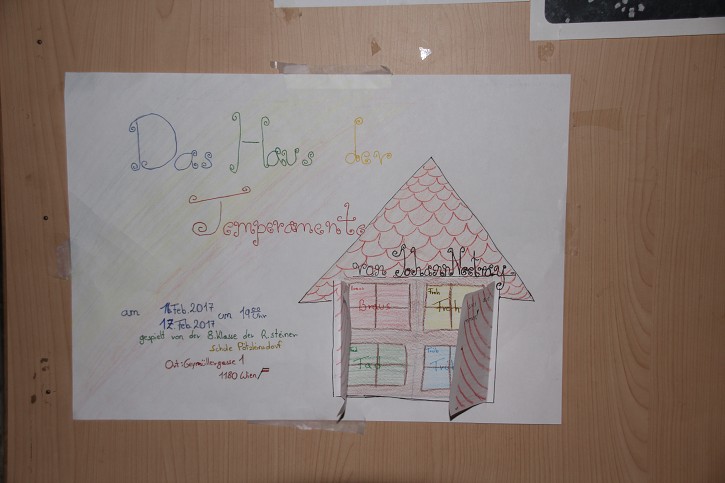 Das Haus der
Temperamente
von Johann Nestroy
am 16. Feb. 2017 um 19:00 Uhr
17. Feb. 2017
gespielt von der 8. Klasse der R. Steiner
Schule Pötzleinsdorf
Ort: Geymüllergasse 1
1180 Wien
Braus Froh
Braus Froh
Fad Trüb
Fad